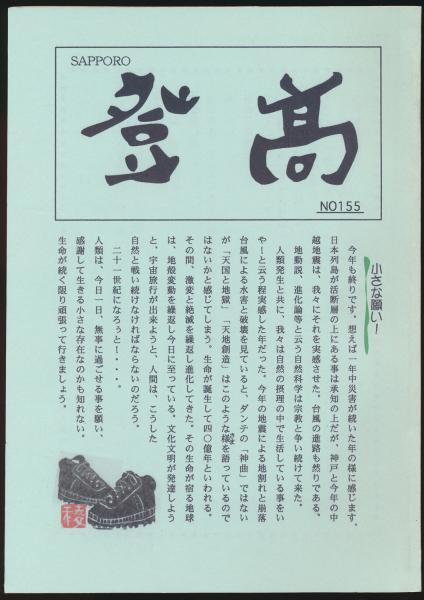 SAPPORO
登高
NO155
小さな願い!
今年も終りです。想えば一年中災害が続いた年の様に感じます。
日本列島が活断層の上にある事は承知の上だが、神戸と今年の中
越地震は、我々にそれを実感させた。台風の進路も然りである。
地動説、進化論等と云う自然科学は宗教と争い続けて来た。
人類発生と共に、我々は自然の摂理の中で生活している事をい
やーと云う程実感した年だった。今年の地震による地割れと崩落
台風による水害と破壊を見ていると、ダンテの「神曲」ではない
が「天国と地獄」・「天地創造」はこのような様を語っているので
はないかと感じてしまう。生命が誕生して四〇億年といわれる。
その間、激変と絶滅を繰返し進化してきた。その生命が宿る地球
は、地殻変動を繰返し今日に至っている。文化文明が発達しよう
と、宇宙旅行が出来ようと、人間は、こうした
自然と戦い続けなければならないのだろう。
二十一世紀になろうと!・・・。
人類は、今日一日、無事に過ごせる事を願い、
感謝して生きる小さな存在なのかも知れない。
生命が続く限り頑張って行きましょう。